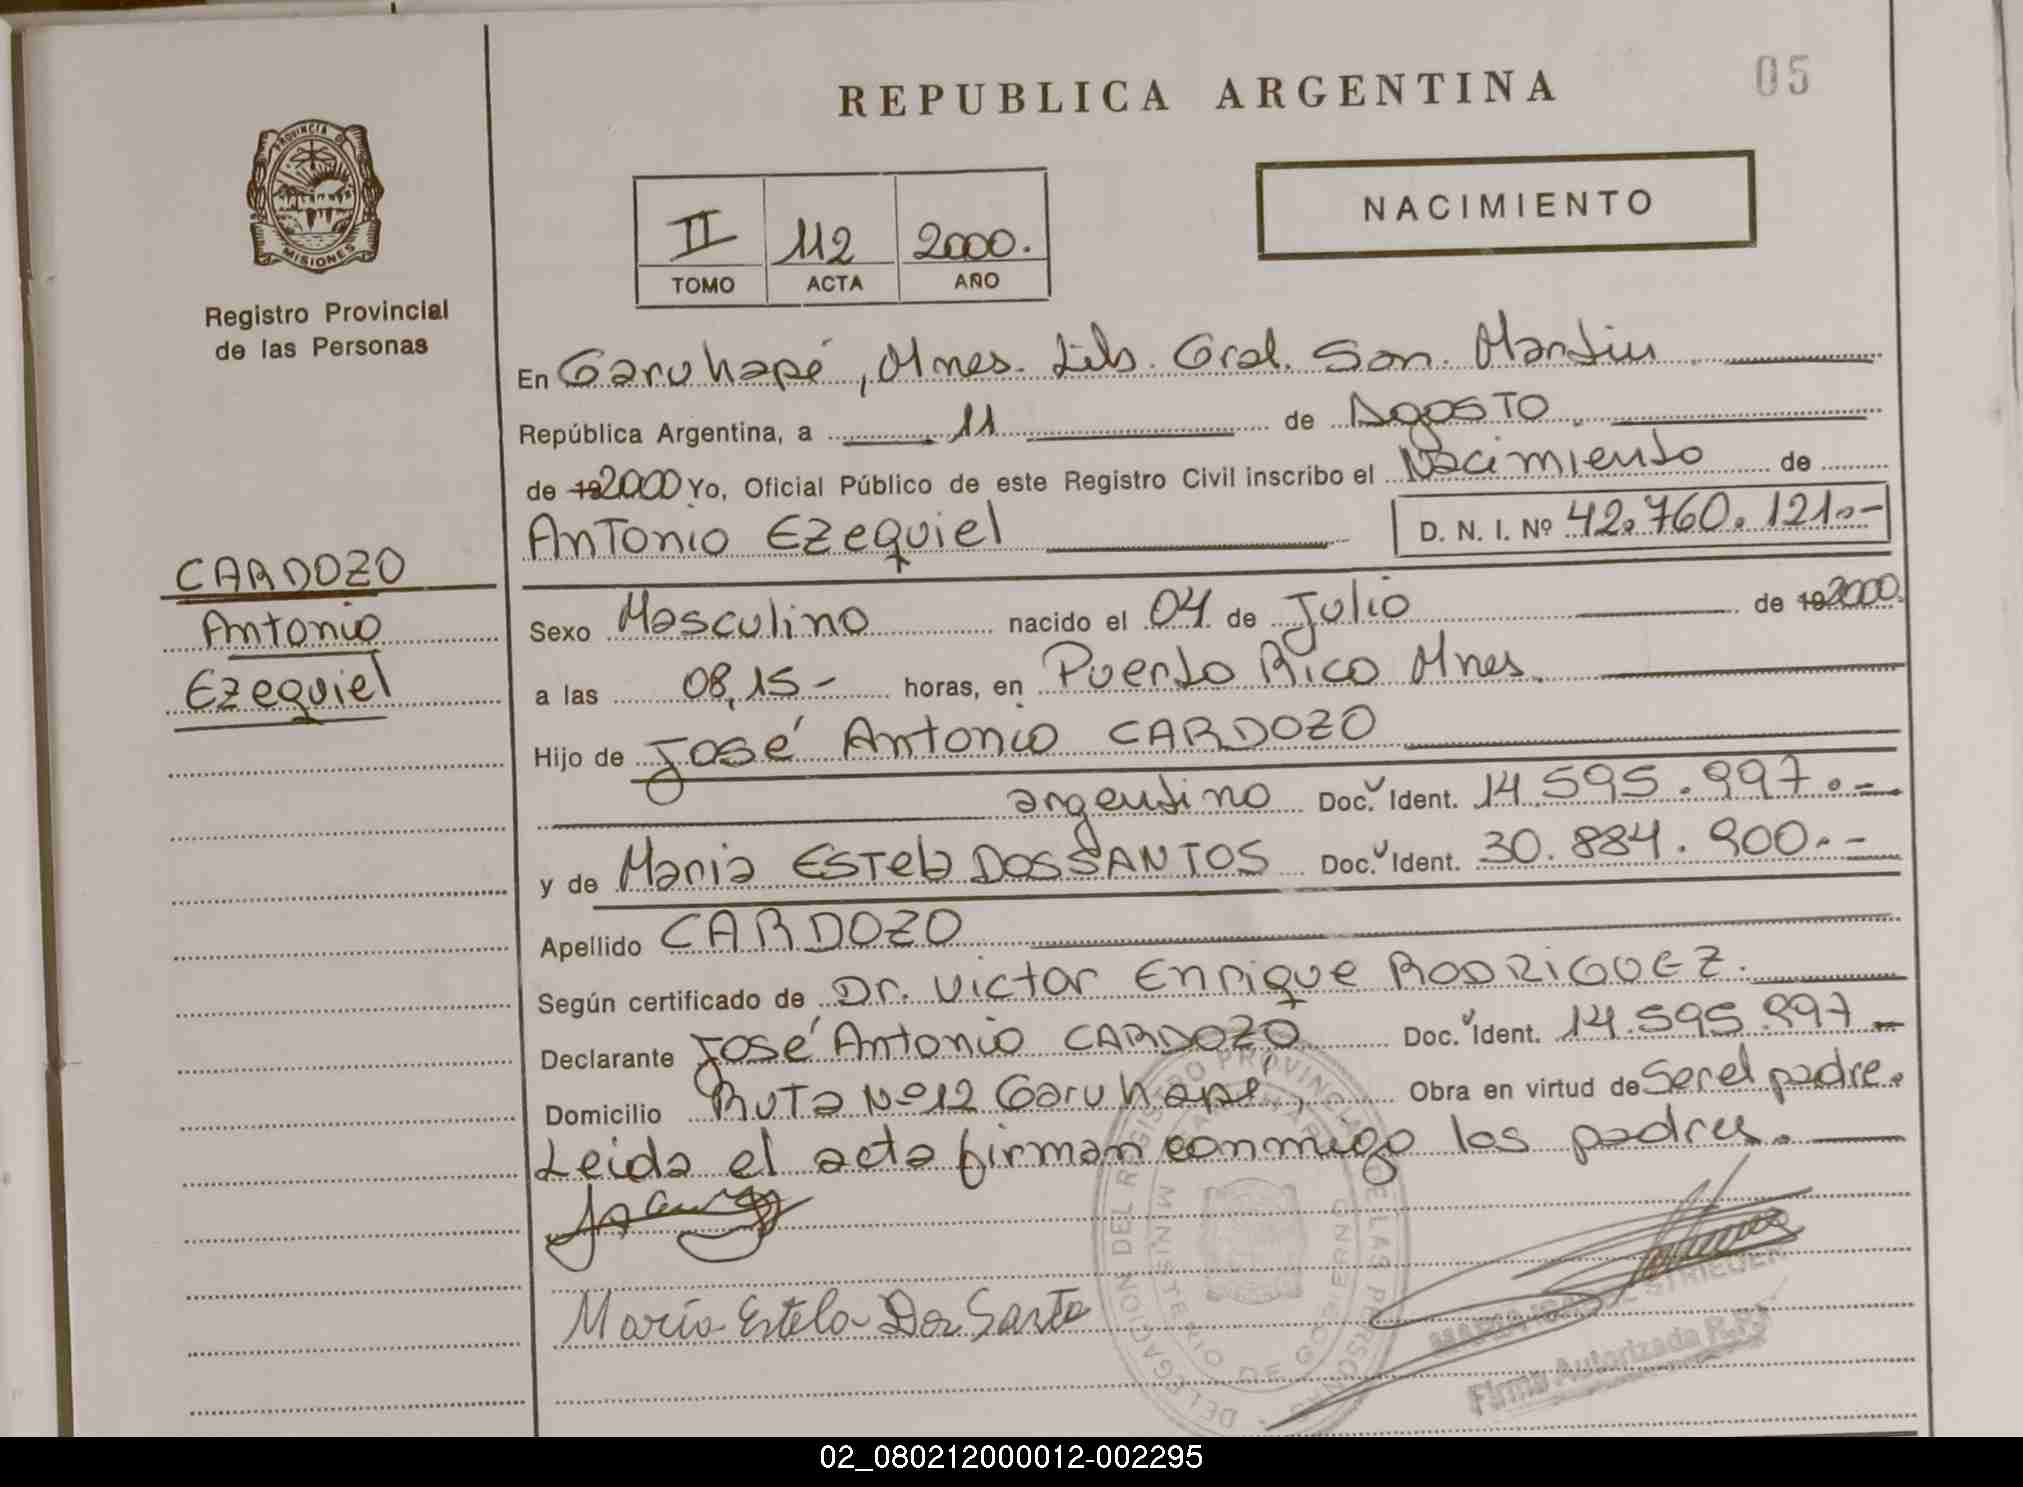 REPUBLICA ARGENTINA
05
PROVINCIA DE
MISIONES
Registro Provincial
de las Personas
II 112 2000.
TOMO ACTA AÑO
NACIMIENTO
En Garuhapé, Mnes. Lib. Gral. San. Martin
República Argentina, a 11 de Agosto
de 192000 Yo, Oficial Público de este Registro Civil inscribo el Nacimiento de
Antonio Ezequiel D. N. I. Nº 42.760.121.-
CARDOZO
Antonio
Ezequiel
Sexo Masculino nacido el 04 de Julio de 192000.
a las 08,15- horas, en Puerto Rico Mnes.
Hijo de José Antonio CARDOZO
argentino Doc. Ident. 14.595.997.-
y de Maria Estela DOSSANTOS Doc. Ident. 30.884.900.-
Apellido CARDOZO
Según certificado de Dr. Victor Enrique RODRIGUEZ.
Declarante José Antonio CARDOZO Doc. Ident. 14.595.997-
Domicilio Ruta Nº 12 Garuhapé, Obra en virtud de Ser el padre.
Leida el acta firman conmigo los padres.
María Estela Dos Santo
DELEGACION DEL REGISTRO PROVINCIAL DE LAS PERSONAS
MINISTERIO DE GOBIERNO
MARIA STRIEDER
Firma Autorizada R.P.P.
02_080212000012-002295